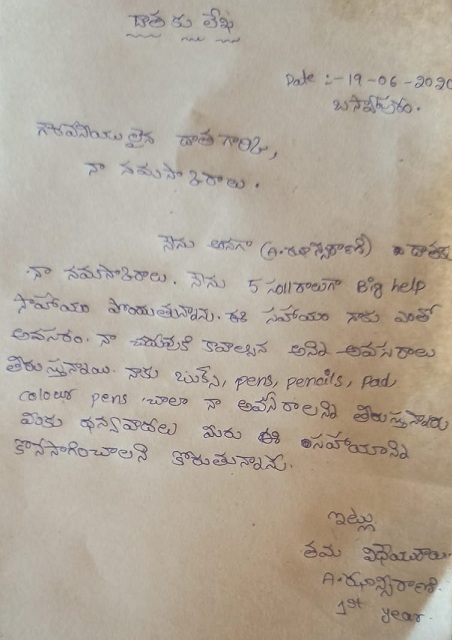 దాతకు లేఖ
Date :- 19-06-2020
బసాపురం.
గౌరవనీయులైన దాత గారికి,
నా నమస్కారాలు.
నేను అనగా (A.ఝాన్సీరాణి) దాతకు
నా నమస్కారాలు. నేను 5 సం||రాలుగా Big help
సాహాయం పొందుతున్నాను. ఈ సహాయం నాకు ఎంతో
అవసరం. నా చదువుకి కావాల్సిన అన్ని అవసరాలు
తీరుస్తున్నాయి. నాకు బుక్స్, pens, pencils, pad,
colour pens చాలా నా అవసరాలన్ని తీరుస్తున్నారు
మీకు ధన్యవాదాలు మీరు ఈ సహాయాన్ని
కొనసాగించాలని కోరుతున్నాను.
ఇట్లు
తమ విధేయురాలు.
A.ఝాన్సీరాణి.
1st year.